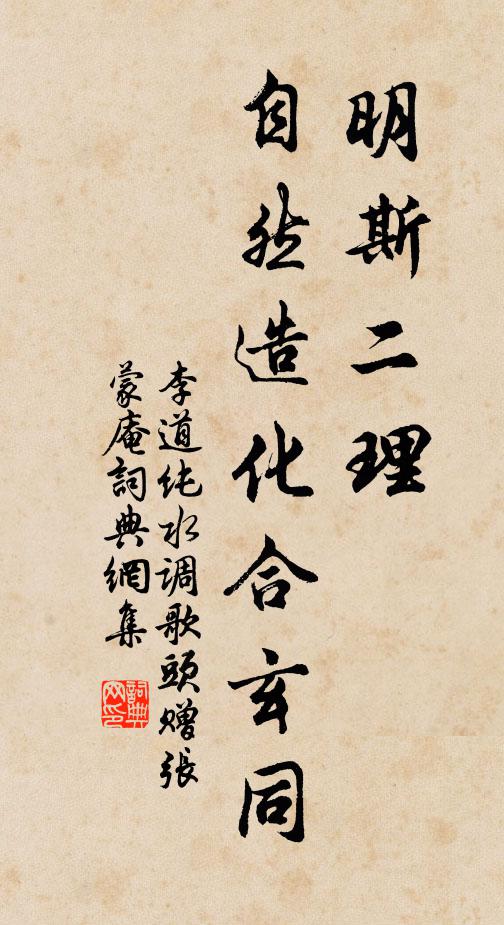 明斯二理
自然造化合玄同
李道纯水调歌頭赠張
蒙庵詞典網集
詞典网印